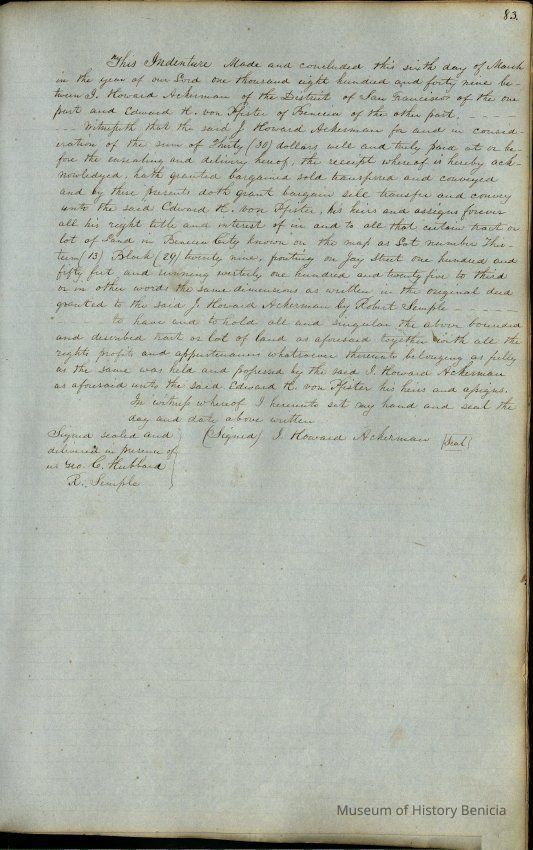 83.
This Indenture Made and concluded this sixth day of March
in the year of our Lord one thousand eight hundred and forty nine be-
tween J. Howard Ackerman of the District of San Francisco of the one
part and Edward H. von Pfister of Benicia of the other part.
Witnesseth that the said J Howard Ackerman for and in consid-
eration of the sum of Thirty (30) dollars well and truly paid at or be-
fore the ensealing and delivery hereof, the receipt whereof is hereby ack-
nowledged, hath granted bargained sold transfered and conveyed
and by these presents doth grant bargain sell transfer and convey
unto the said Edward H. von Pfister, his heirs and assigns forever
all his right title and interest of in and to all that certain tract or
lot of Land in Benicia City known on the map as Lot number Thir-
teen (13) Block (29) twenty nine, fronting on Jay Street one hundred and
fifty feet and running westerly one hundred and twenty five to third
or in other words the same dimensions as written in the original deed
granted to the said J. Howard Ackerman by Robert Semple
to have and to hold all and singular the above bounded
and described tract or lot of land as aforesaid together with all the
rights profits and appurtenances whatsoever thereunto belonging as fully
as the same was held and possessed by the said J. Howard Ackerman
as aforesaid unto the said Edward H. von Pfister his heirs and assigns.
In witness whereof I hereunto set my hand and seal the
day and date above written
Signed sealed and (Signed) J. Howard Ackerman [Seal]
delivered in presence of
us Geo. C. Hubbard
R. Semple
Museum of History Benicia